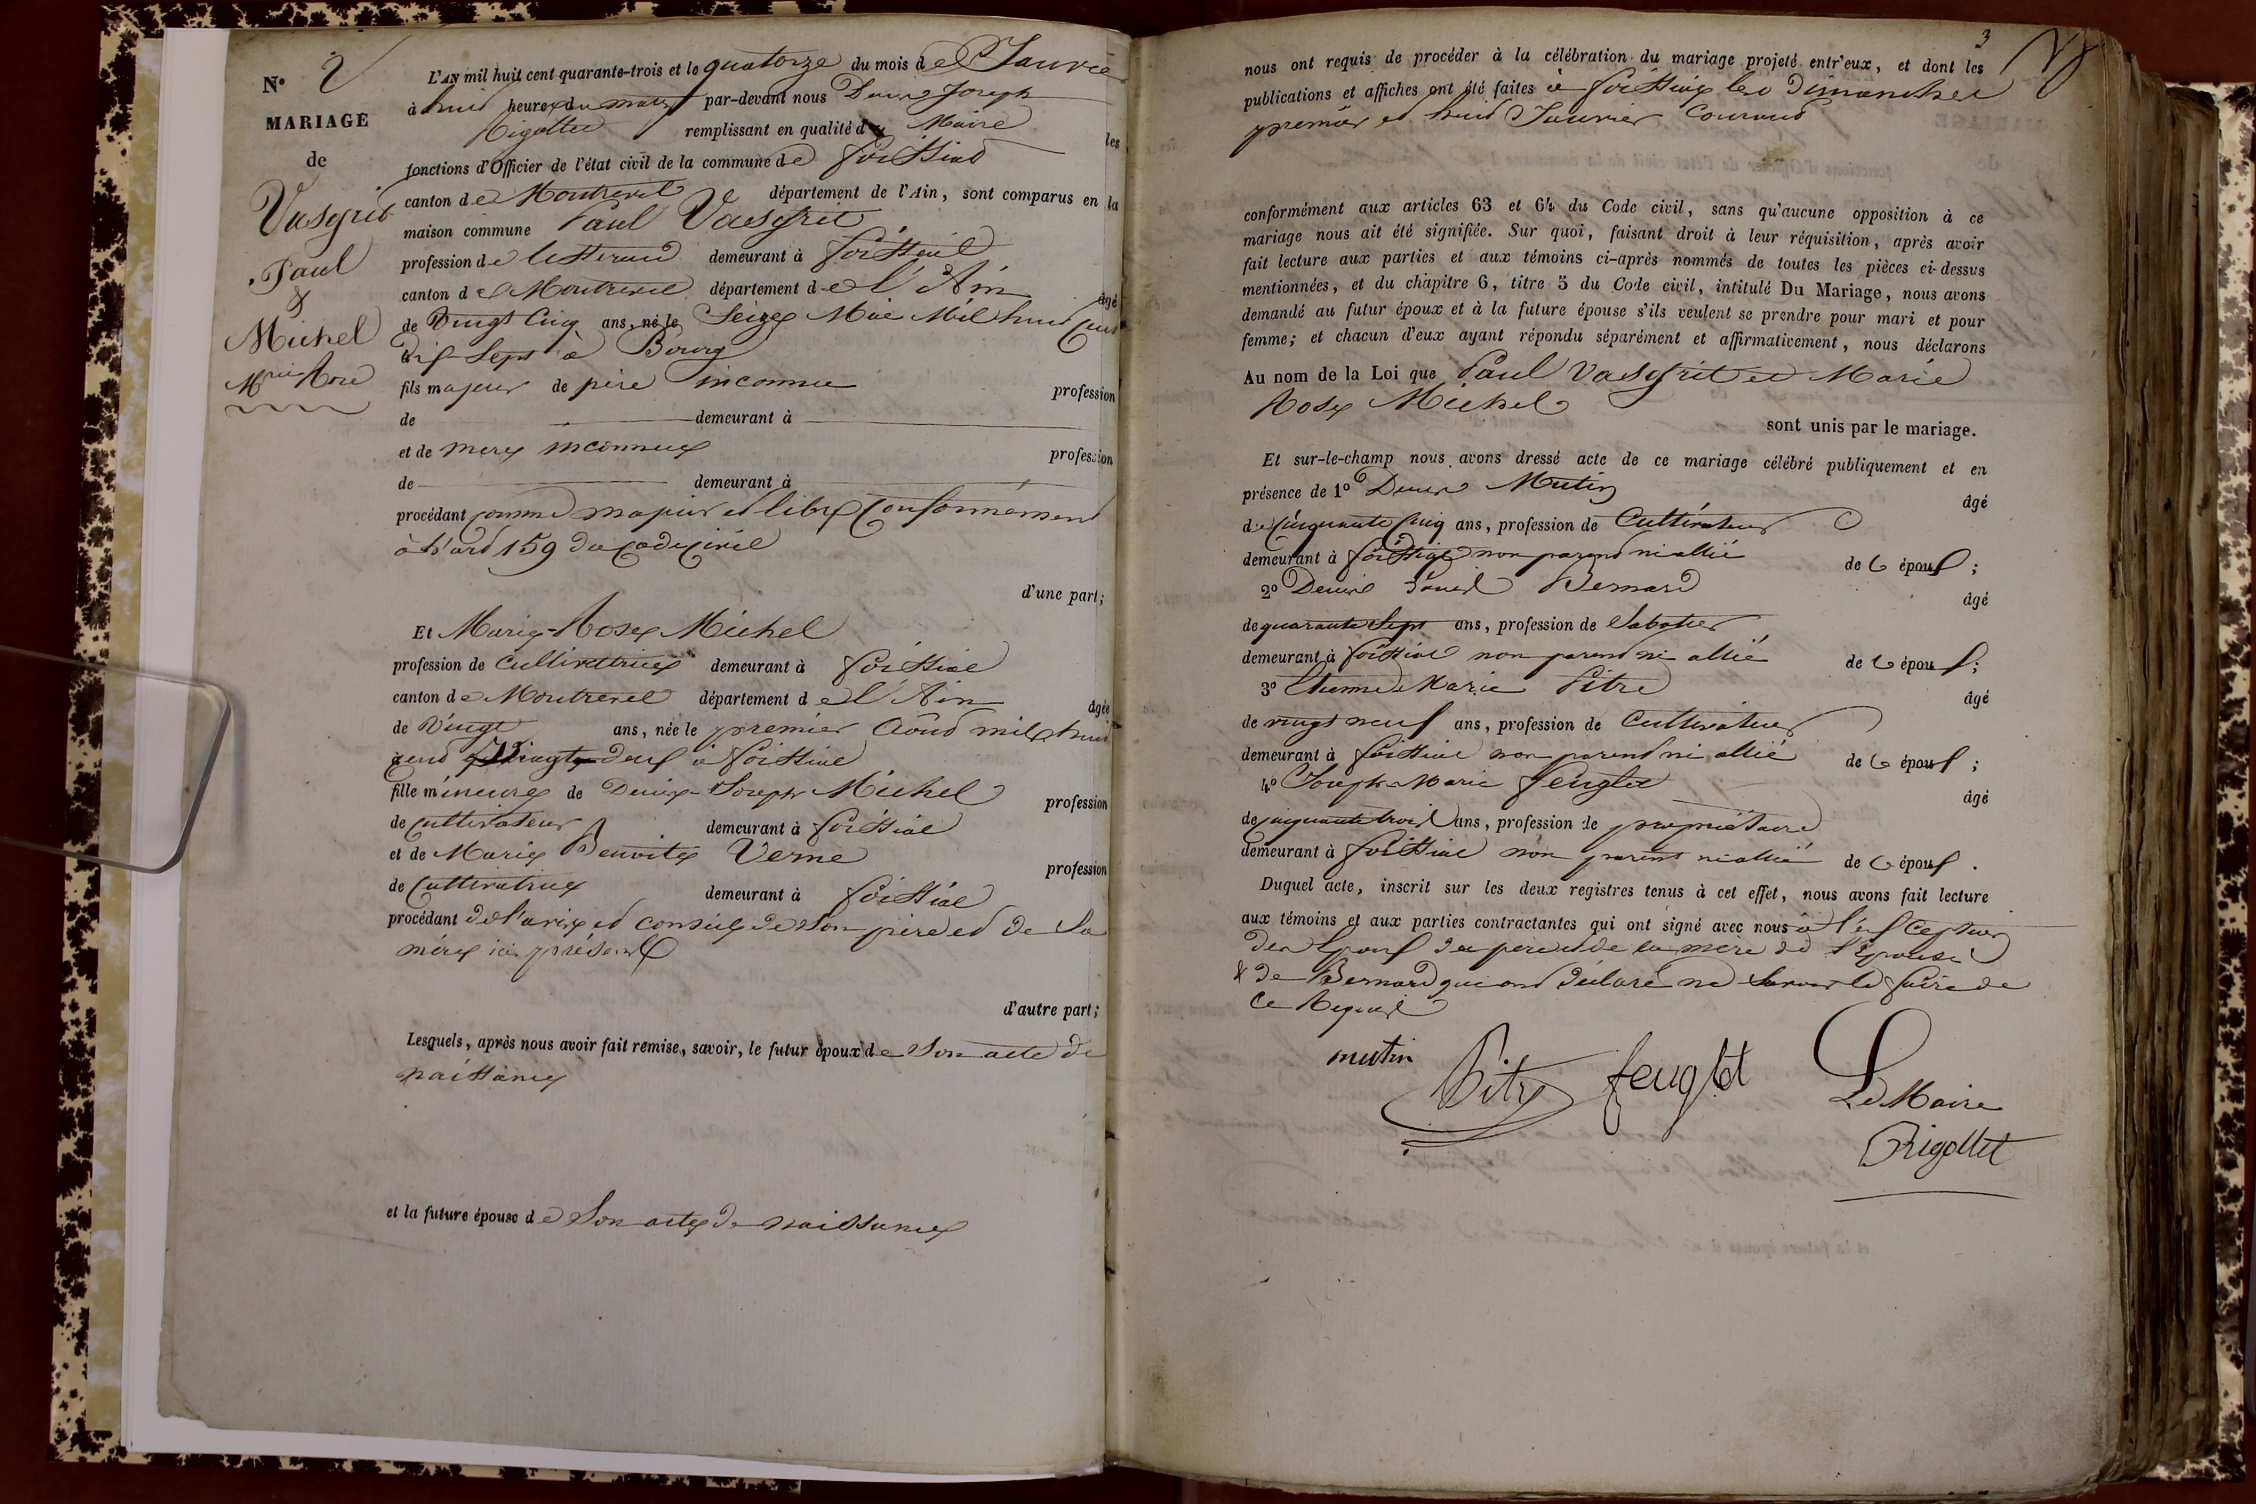 N° 2
MARIAGE
de
Vasgrit
Paul
&
Michel
Mie Rose
L'AN mil huit cent quarante-trois et le quatorze du mois de Janvier
à huit heures du matin par-devant nous Denis Joseph
Rigollet remplissant en qualité de Maire les
fonctions d'Officier de l'état civil de la commune de foissiat
canton de Montrevel département de l'Ain, sont comparus en la
maison commune Paul Vasgrit
profession de demeurant à foissiat
canton de Montrevel département de l'Ain âgé
de Vingt Cinq ans, né le Seize Mai Mil huit Cent
dix Sept à Bourg
fils majeur de père inconnu profession
de demeurant à
et de mere inconnue profession
de demeurant à
procédant comme majeur et libre Conformément
à l'art 159 du Code Civil
d'une part;
Et Marie-Rose Michel
profession de Cultivatrice demeurant à foissiat
canton de Montrevel département de l'Ain âgée
de Vingt ans, née le premier Août mil huit
cent vingt deux à foissiat
fille mineure de Denis-Joseph Michel profession
de Cultivateur demeurant à foissiat
et de Marie Benoite Verne profession
de Cultivatrice demeurant à foissiat
procédant de l'avis et conseil de Son père et de Sa
mère ici présents
d'autre part;
Lesquels, après nous avoir fait remise, savoir, le futur époux de Son acte de
naissance
et la future épouse de Son acte de naissance
3
nous ont requis de procéder à la célébration du mariage projeté entr'eux, et dont les
publications et affiches ont été faites à foissiat les dimanches
premier et huit Janvier Courant
conformément aux articles 63 et 64 du Code civil, sans qu'aucune opposition à ce
mariage nous ait été signifiée. Sur quoi, faisant droit à leur réquisition, après avoir
fait lecture aux parties et aux témoins ci-après nommés de toutes les pièces ci-dessus
mentionnées, et du chapitre 6, titre 5 du Code civil, intitulé Du Mariage, nous avons
demandé au futur époux et à la future épouse s'ils veulent se prendre pour mari et pour
femme; et chacun d'eux ayant répondu séparément et affirmativement, nous déclarons
Au nom de la Loi que Paul Vasgrit et Marie
Rose Michel
sont unis par le mariage.
Et sur-le-champ nous avons dressé acte de ce mariage célébré publiquement et en
présence de 1° Denis Mutin âgé
de Cinquante Cinq ans, profession de Cultivateur
demeurant à foissiat non parent ni allié des époux;
2° Denis Bernard âgé
de quarante Sept ans, profession de Sabotier
demeurant à foissiat non parent ni allié des époux;
3° Etienne Marie Pitre âgé
de vingt neuf ans, profession de Cultivateur
demeurant à foissiat non parent ni allié des époux;
4° Joseph Marie feuglet âgé
de cinquante trois ans, profession de propriétaire
demeurant à foissiat non parent ni allié des époux.
Duquel acte, inscrit sur les deux registres tenus à cet effet, nous avons fait lecture
aux témoins et aux parties contractantes qui ont signé avec nous à l'exception
des époux du pere et de la mere de l'épouse
& de Bernard qui ont déclaré ne Savoir le faire de
Ce Requis
mutin Pitre feuglet Le Maire
Rigollet